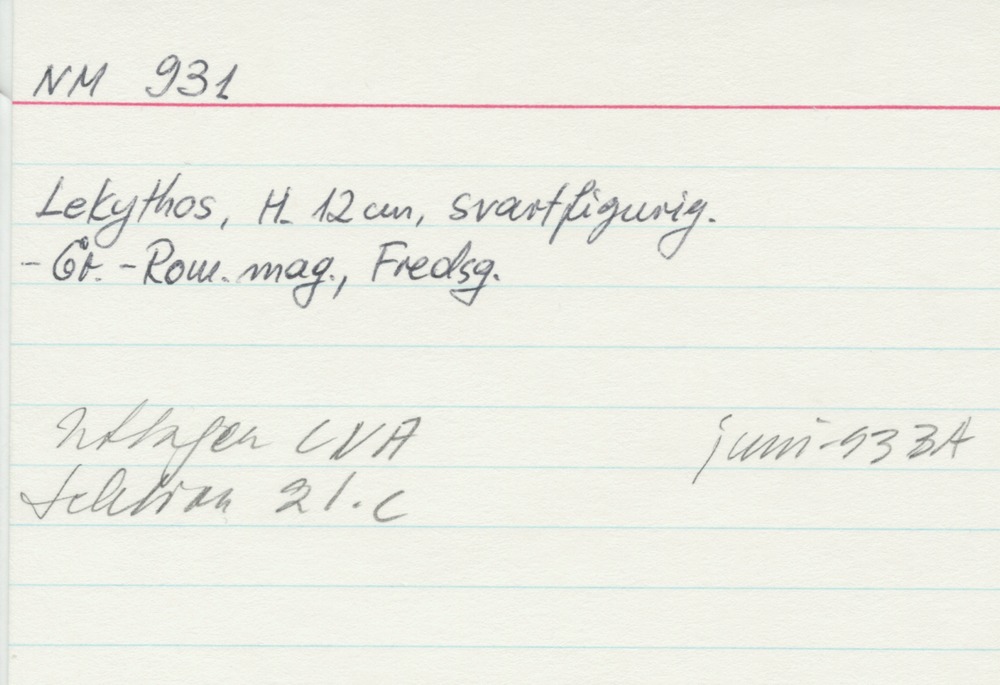 NM 931
Lekythos, H. 12 cm, svartfigurig.
- Gr. - Rom. mag., Fredsg.
Uttagen CVA juni-93 BA
Sektion 21.C